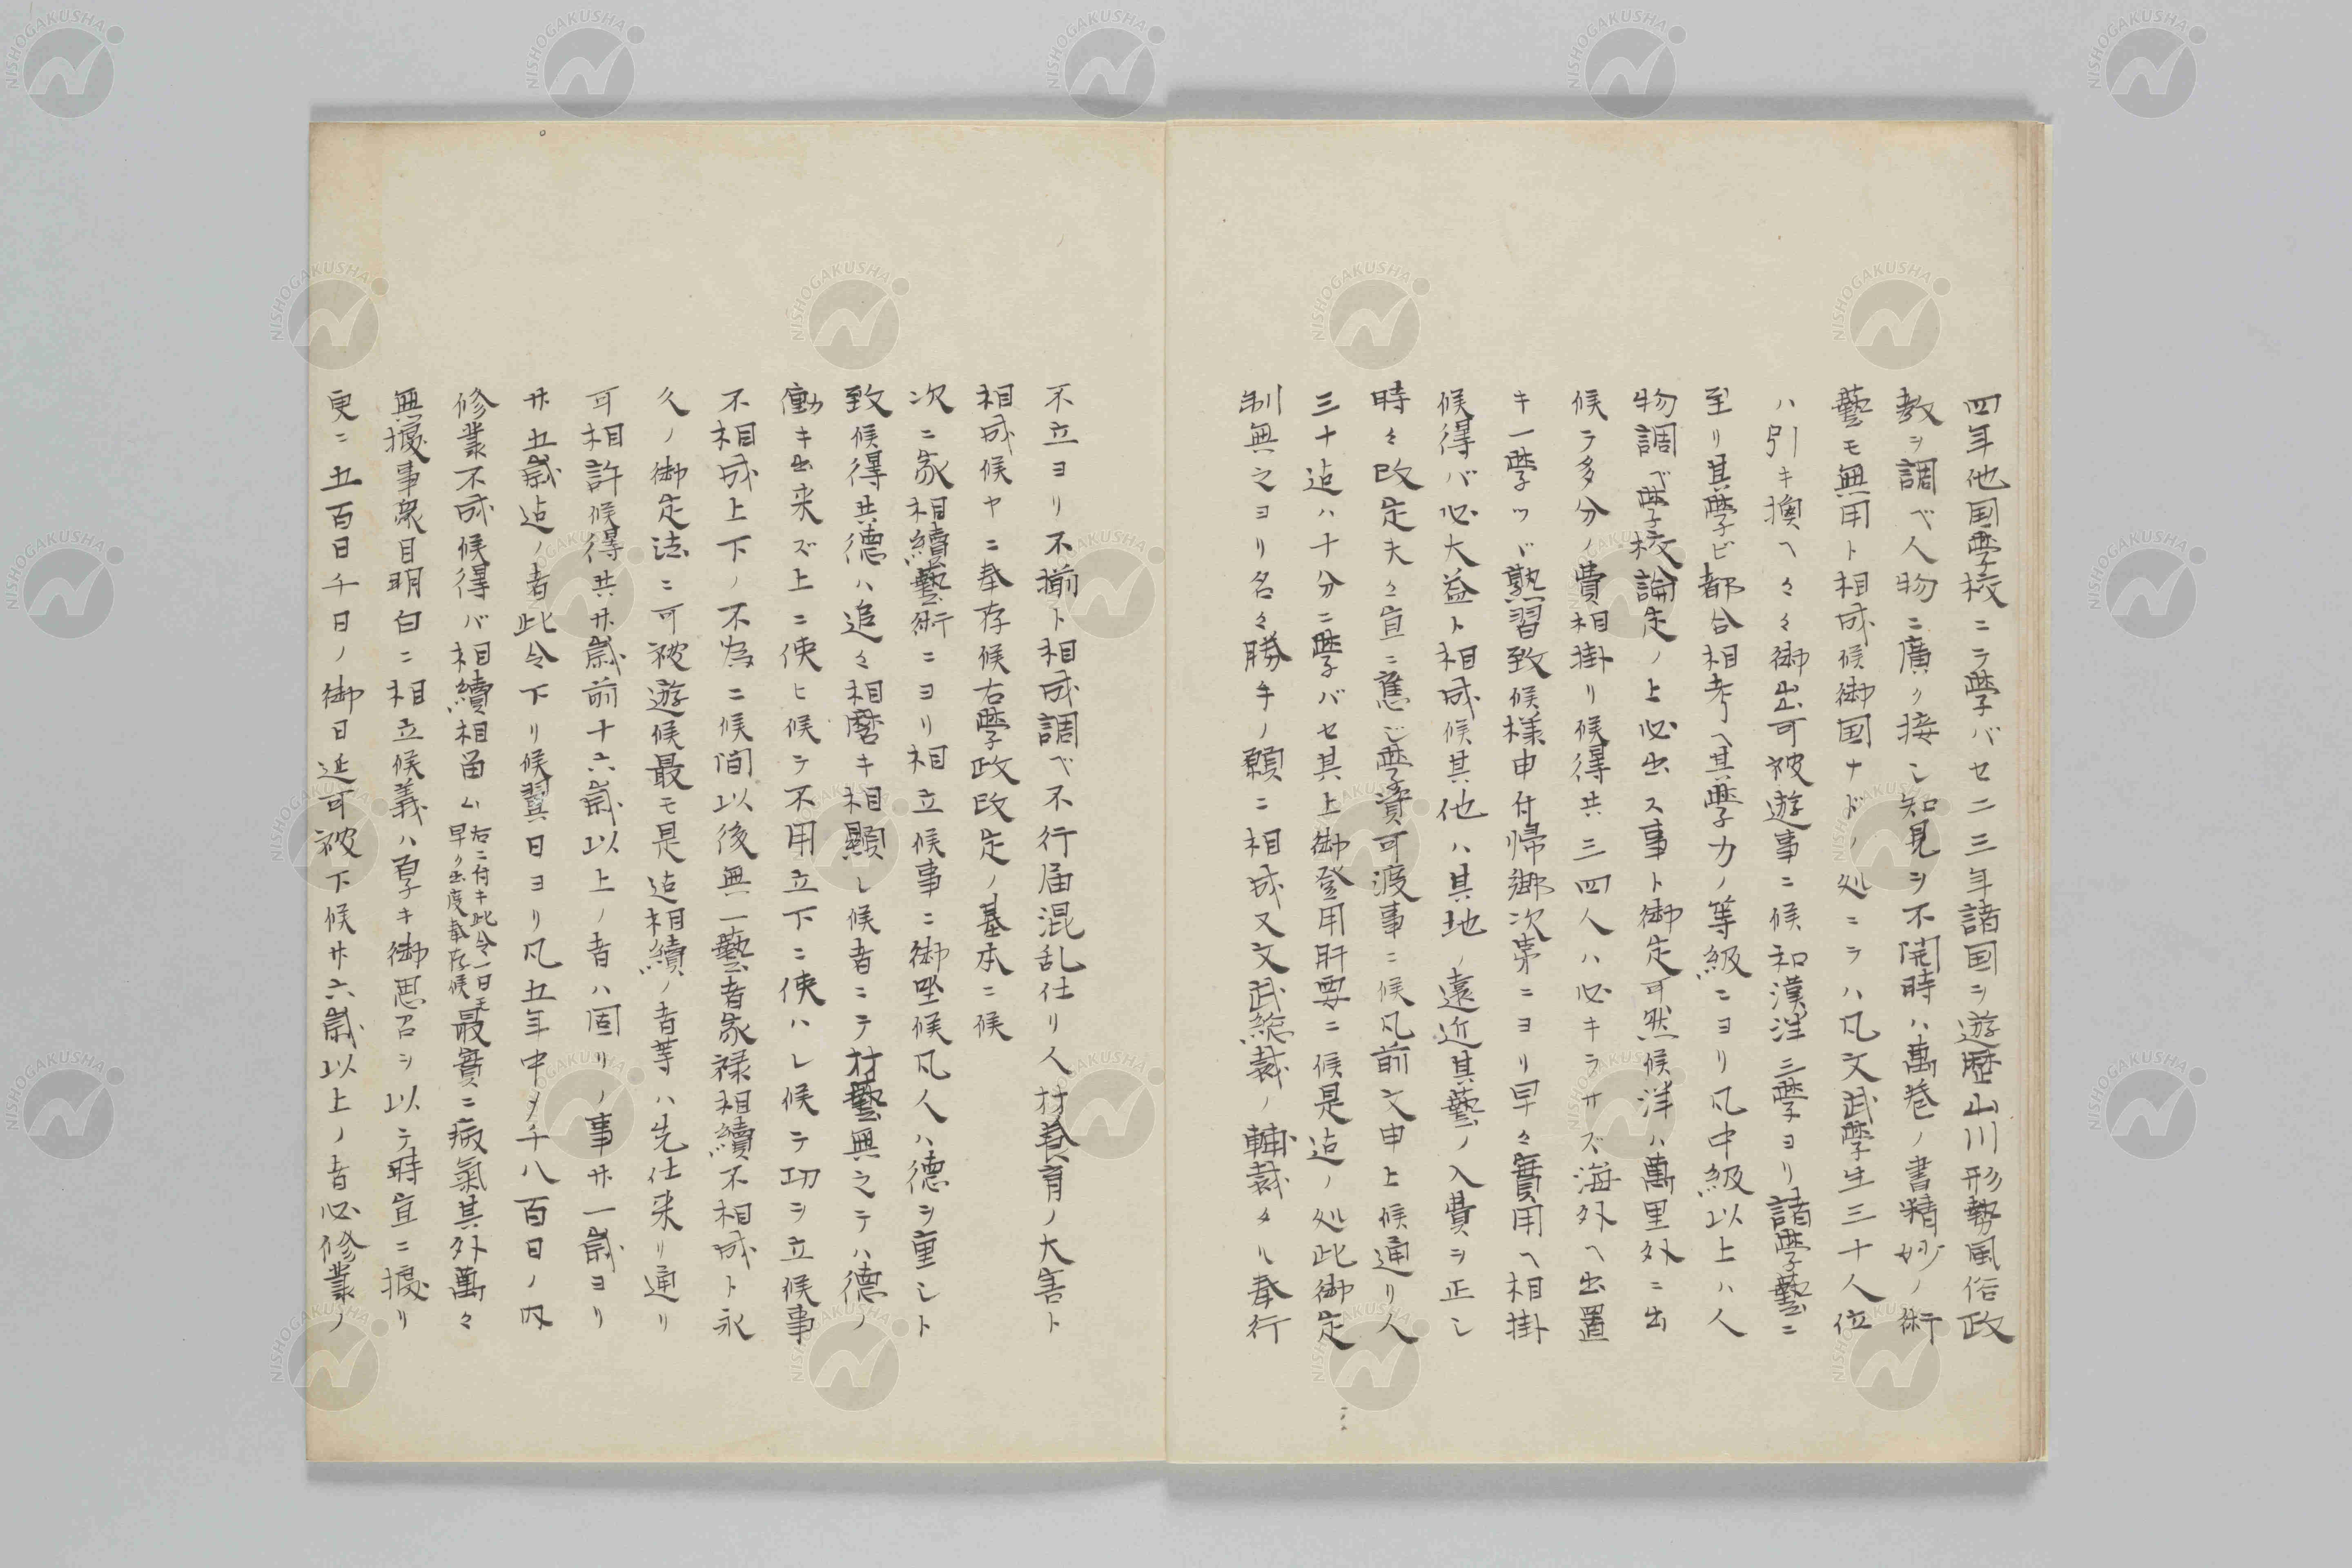 四年他国學校ニテ學バセ二三年諸国ヲ遊歴山川形勢風俗政
教ヲ調ベ人物ニ廣ク接シ知見ヲ不開時ハ萬巻ノ書精妙ノ術
藝モ無用ト相成候御国ナドノ処ニテハ凡文武學生三十人位
ハ引キ換ヘ々々御出可被遊事ニ候和漢洋三學ヨリ諸學藝ニ
至リ其學ビ都合相考ヘ其學力ノ等級ニヨリ凡中級以上ハ人
物調ベ學校論定ノ上必出ス事ト御定可然候洋ハ萬里外ニ出
候テ多分ノ費相掛リ候得共三四人ハ必キラサズ海外ヘ出置
キ一學ヅヽ熟習致候様申付帰郷次第ニヨリ早々實用ヘ相掛
候得バ必大益ト相成候其他ハ其地ノ遠近其藝ノ入費ヲ正シ
時々改定夫々宜ニ應ジ學資可渡事ニ候凡前文申上候通リ人
三十迠ハ十分ニ學バセ其上御登用肝要ニ候是迠ノ処此御定
制無之ヨリ名々勝手ノ願ニ相成又文武総裁ノ輔裁タル奉行
不立ヨリ不揃ト相成調ベ不行届混乱仕リ人材養育ノ大害ト
相成候ヤニ奉存候右學政改定ノ基本ニ候
次ニ家相續藝術ニヨリ相立候事ニ御坐候凡人ハ德ヲ重シト
致候得共德ハ追々相磨キ相顯レ候者ニテ材藝無之テハ德ノ
働キ出来ズ上ニ使ヒ候テ不用立下ニ使ハレ候テ功ヲ立候事
不相成上下ノ不為ニ候間以後無一藝者家禄相續不相成ト永
久ノ御定法ニ可被遊候最モ是迠相續ノ者等ハ先仕来リ通リ
可相許候得共廿歳前十六歳以上ノ者ハ固リノ事廿一歳ヨリ
廿五歳迠ノ者此令下リ候翌日ヨリ凡五年中〆千八百日ノ内
修業不成候得バ相續相留ム右ニ付キ此令一日モ早ク出度奉存候最實ニ病氣其外萬々
無據事衆目明白ニ相立候義ハ享キ御思召ヲ以テ時宜ニ據リ
更ニ五百日千日ノ御日延可被下候廿六歳以上ノ者必修業ノ
NISHOGAKUSHA